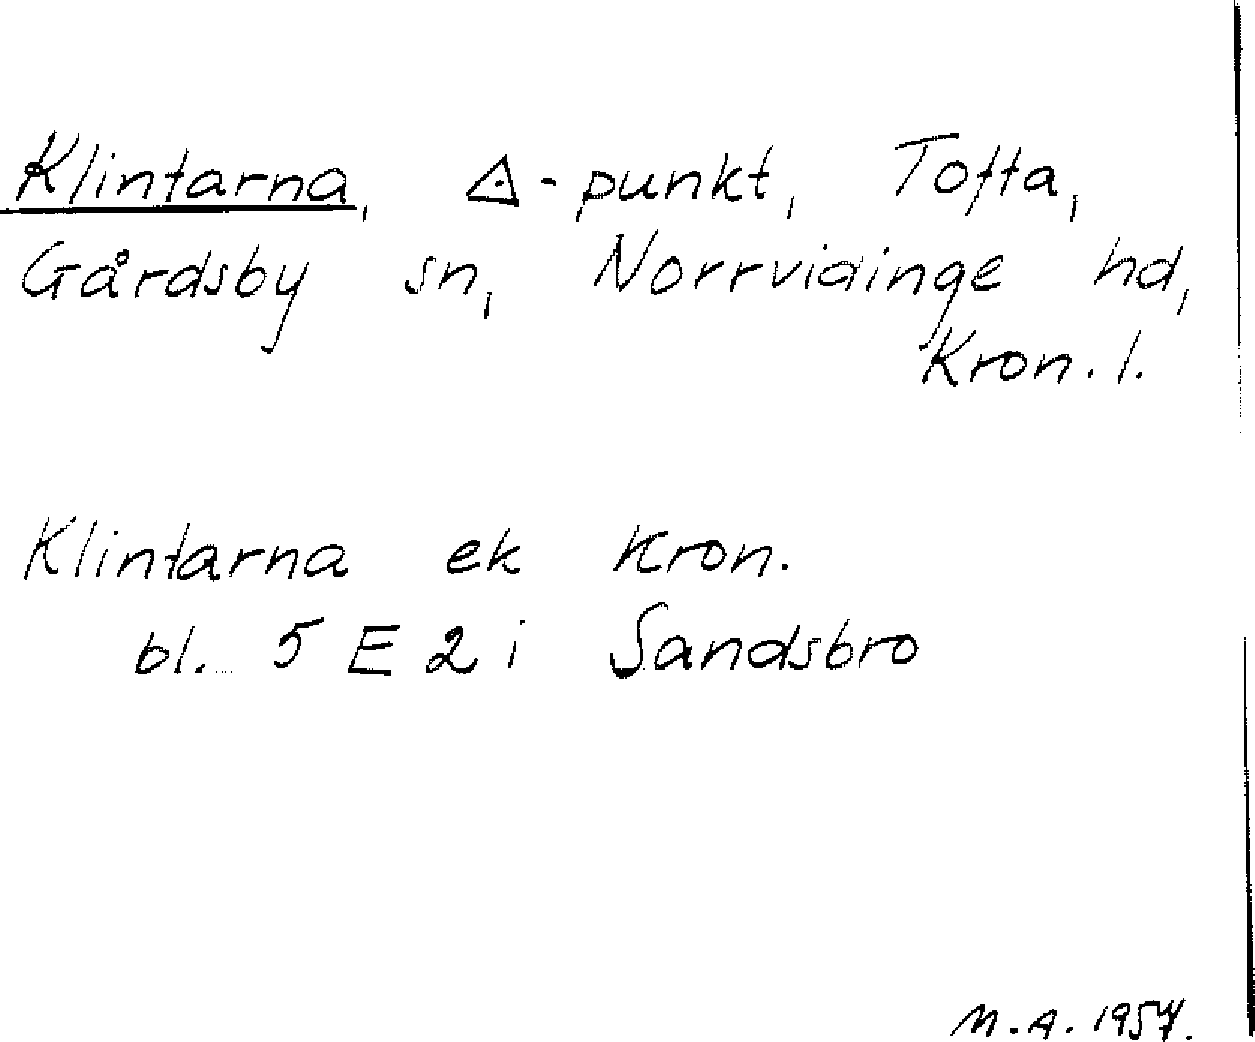 Klintarna, ⟁-punkt, Tofta,
Gårdsby sn, Norrvidinge hd,
Kron. l.
Klintarna ek Kron.
bl. 5 E 2 i Sandsbro
M.A. 1957.